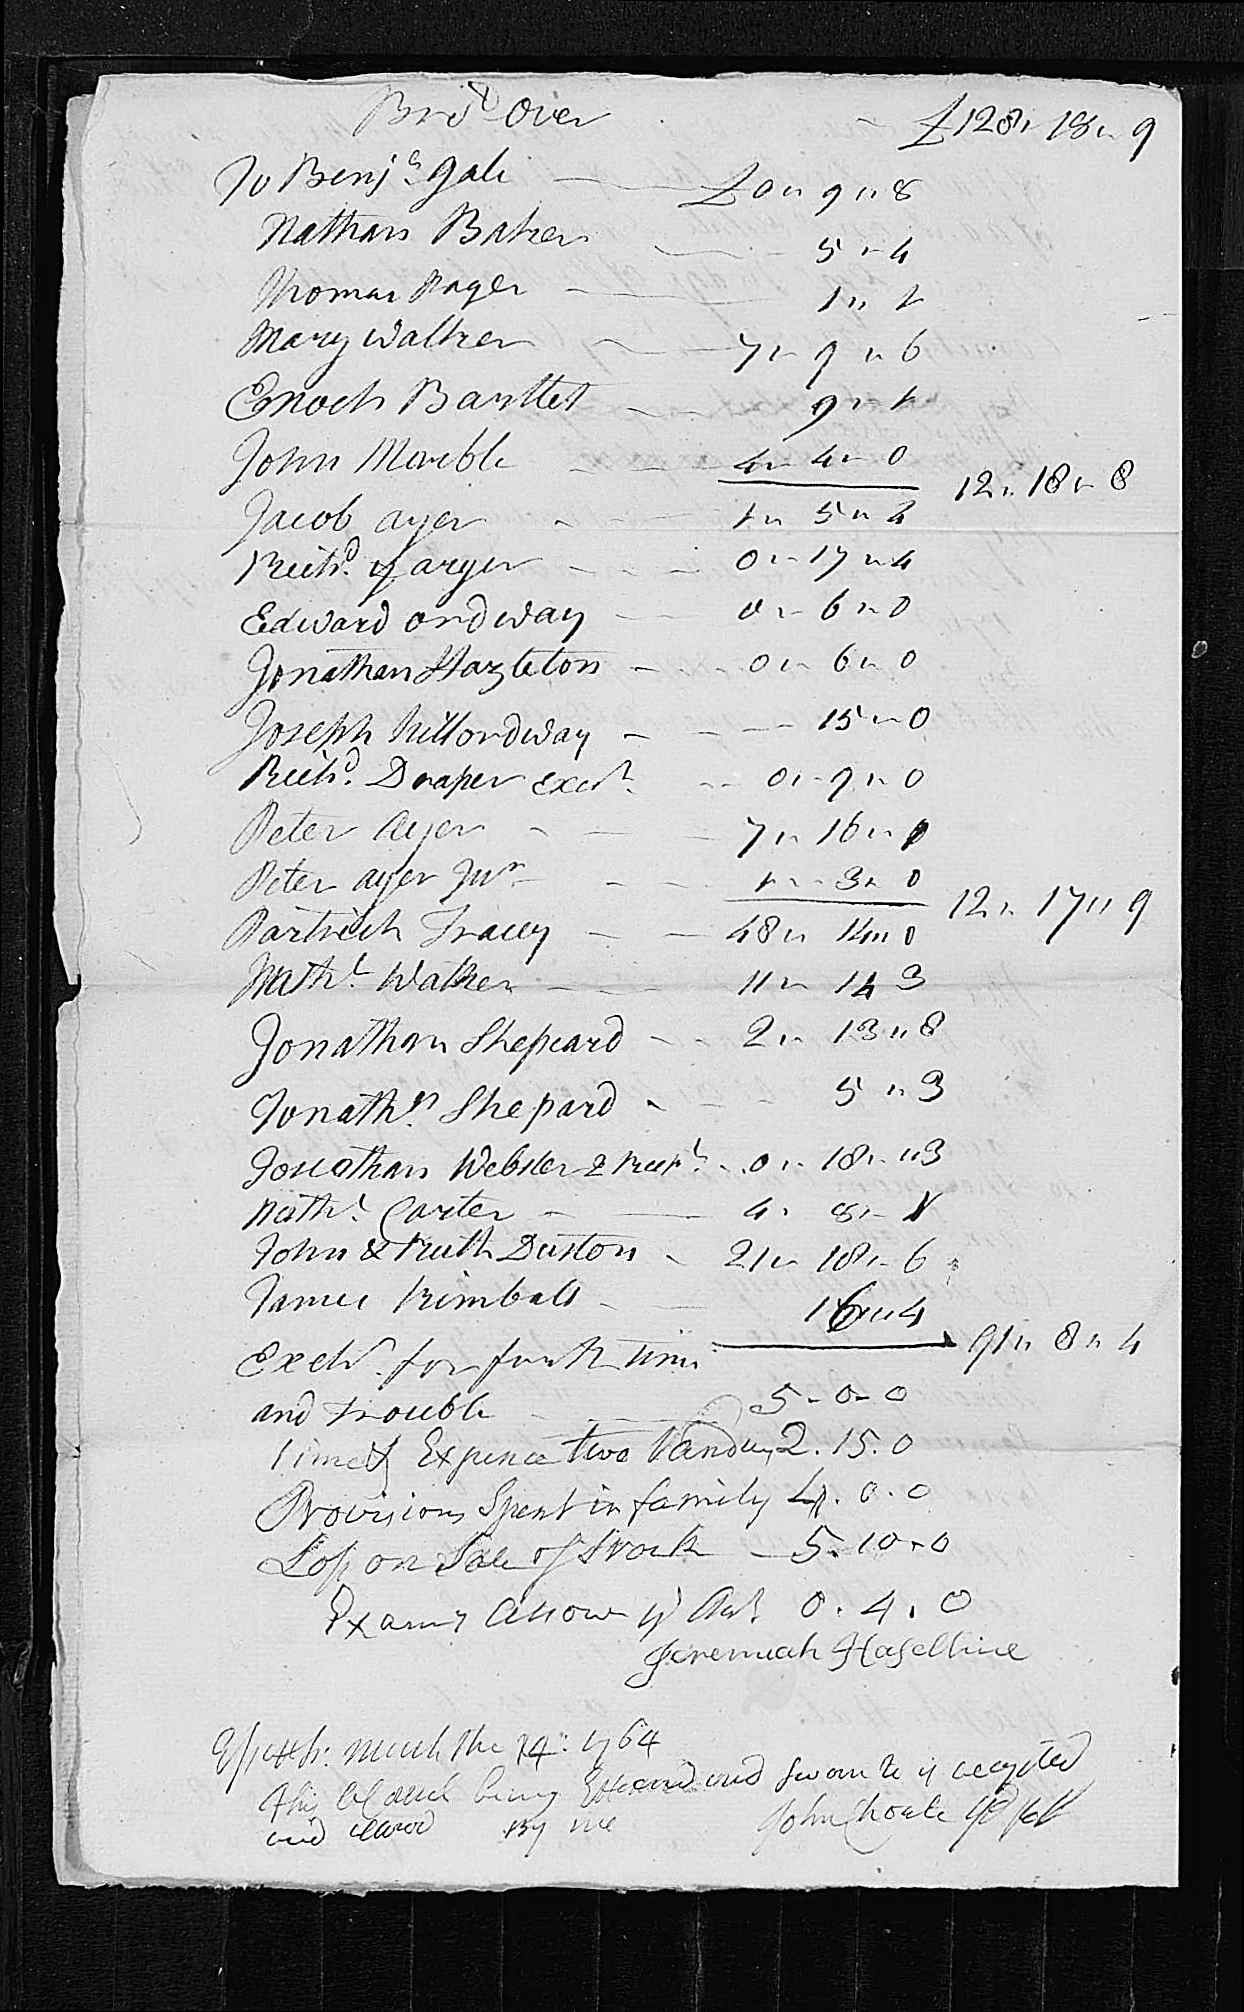 Bro.t Over £128" 18" 9
To Benj.a Gale £0" 9"8
Nathan Baker 5"4
Thomas Page 1" 1
Mary Walker 7" 9"6
Enoch Bartlet 9"1
John Marble 4" 4"0 12" 18" 8
Jacob Ayer 1" 5"4
Rich.d Ayer 0" 17"4
Edward ordway 0" 6"0
Jonathan Hazleton 0" 6"0
Joseph hill ordway 15"0
Rich.d Draper Exec.r 0" 9"0
Peter Ayer 7" 16"1
Peter ayer Jun.r 1" 3"0 12" 17" 9
Partrick Tracey 48" 14"0
Nath.l Walker 11" 14 3
Jonathan Shepeard 2" 13"8
Jonath.n Shepard 5"3
Jonathan Webster 0" 18"3
Nath.l Carter 4" 8"1
John & Ruth Duston 21" 18"6
James Kimball 16"4 91" 8" 4
Exec.r for time
and trouble 5-0-0
time & Expence two Vandue 2.15.0
Provisions Spent in family 4.0.0
Loss on Sale of Stock 5.10.0
Exam.g Allow.g y.e Act 0.4.0
Jeremiah Haseltine
Essex ss: the 14: 1764
This being and sworn to is accepted
and alowd By me John Choate